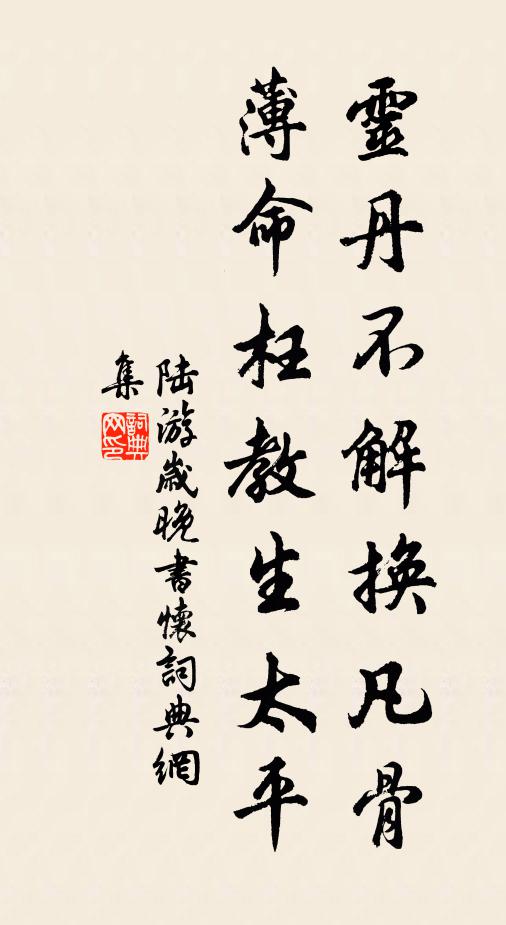 靈丹不解換凡骨
薄命枉教生太平
陆游歲晚書懷詞典網
集
詞典網印